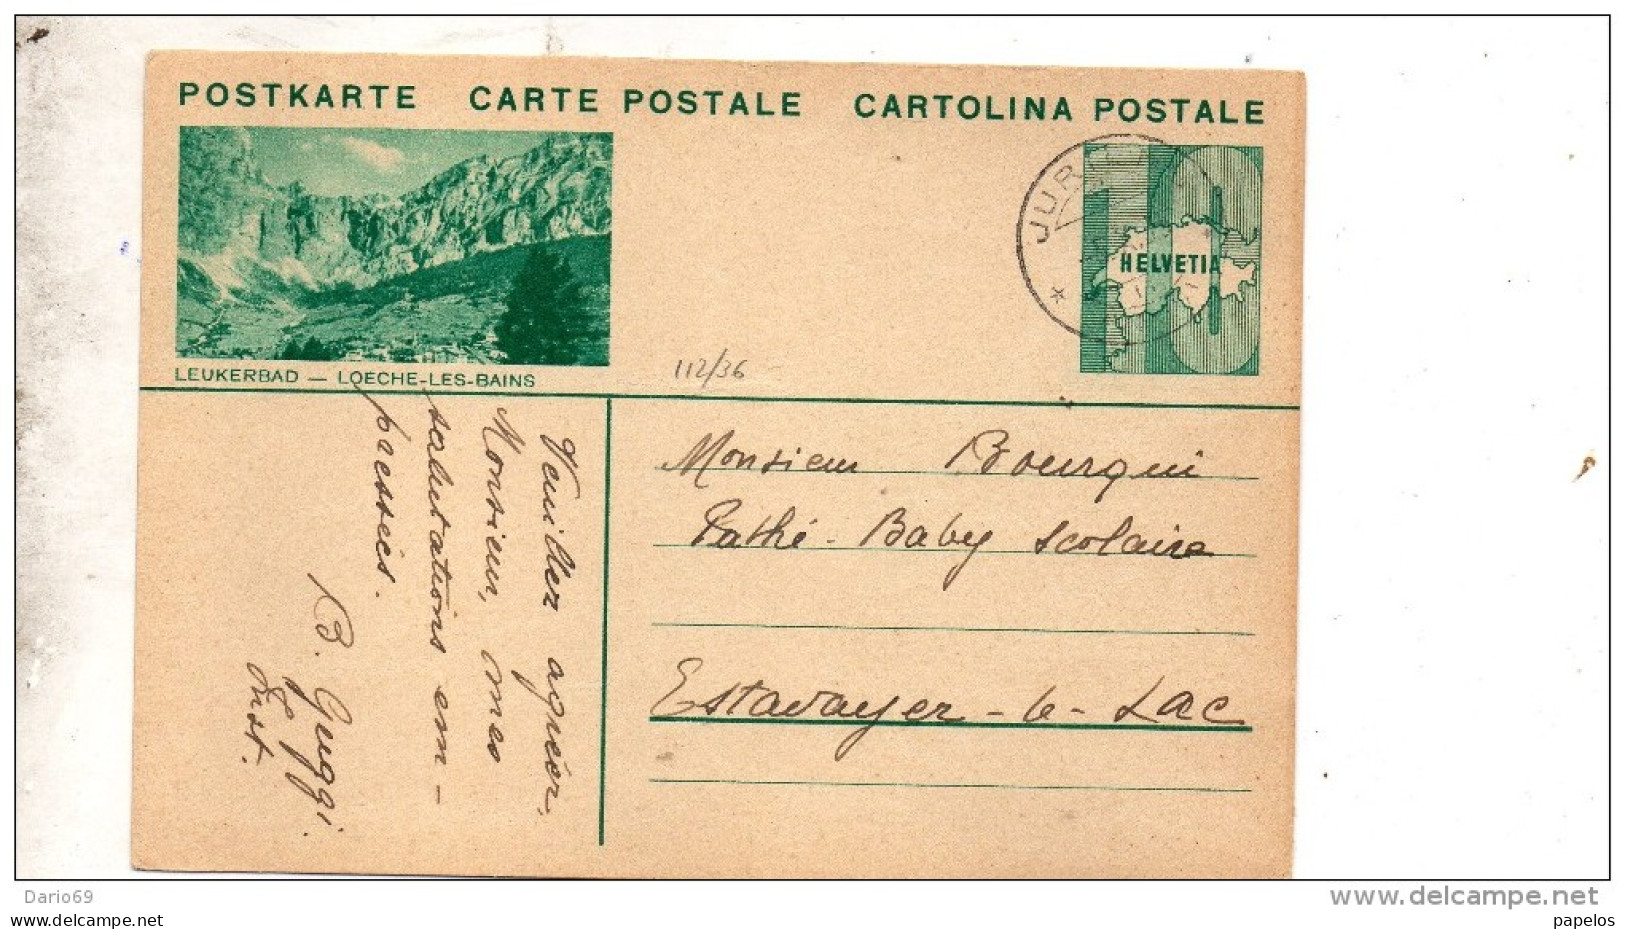 POSTKARTE CARTE POSTALE CARTOLINA POSTALE
HELVETIA
LEUKERBAD — LOECHE-LES-BAINS
112/36
Veuillez agréer,
Monsieur, mes
salutations em-
pressées.
B. Guggi.
Inst.
Monsieur Bourqui
Pathé-Baby scolaire
Estavayer-le-Lac
Dario69
delcampe.net
papelos